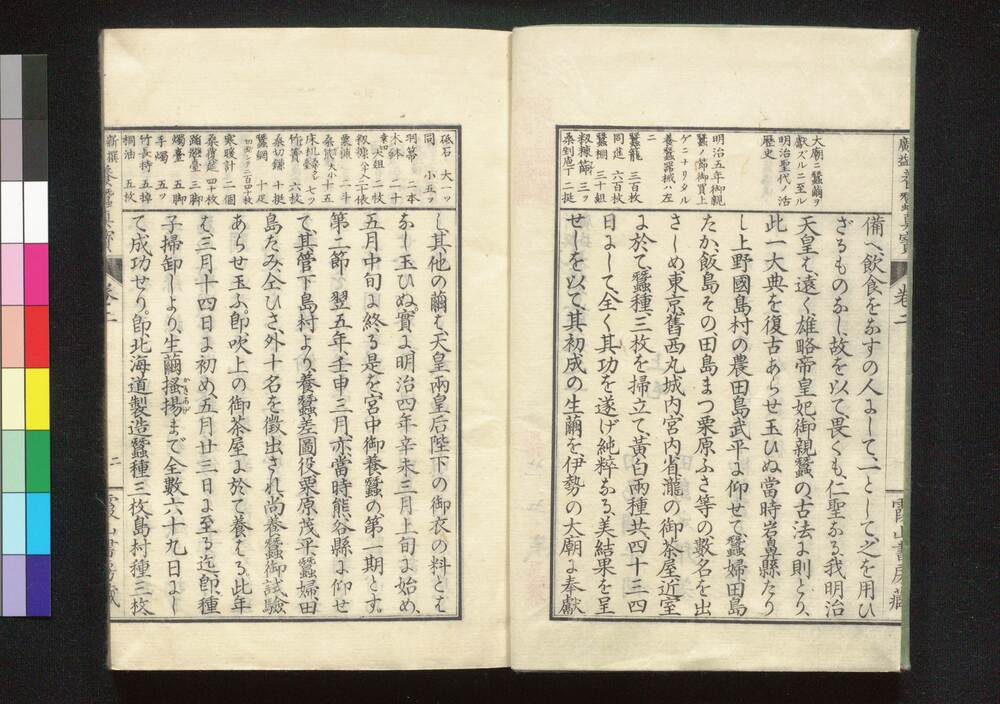 大廟ニ蠶繭ヲ
獻ズルニ至ル
明治聖代ノ活
歴史
明治五年御親
蠶ノ節御買上
ゲニナリタル
養蠶器械ハ左
ニ
蠶籠 三百枚
同筵 六百枚
蠶棚 三十組
籾糠篩 三ッ
桑刻庖丁 二挺
備へ、飲食をなすの人にして、一として、之を用ひ
ざるものなし、故を以て、畏くも、仁聖なる、我明治
天皇は、遠く雄略帝皇妃御親蠶の、古法に則とり、
此一大典を復古あらせ玉ひぬ、當時岩鼻縣たり
し上野國島村の農田島武平に仰せて、蠶婦田島
たか、飯島その、田島まつ、栗原ふさ等の數名を出
さしめ東京舊西丸城内、宮内省瀧の御茶屋近室
に於て、蠶種三枚を掃立て、黄白兩種共、四十三四
日にして、全く其功を遂げ純粹なる、美結果を呈
せしを以て、其初成の生繭を、伊勢の大廟に奉獻
卷二
霞山書房藏
砥石 大一ッ
同 小五ッ
羽箒 二本
木鉢 二十
籾糠篩入 二十俵
桑切鎌 十挺
蠶網 十疋
寒暖計 二個
桑摘筵 四十枚
踏繼臺 三脚
燭臺 五脚
手燭 五ッ
竹長持 五棹
桐油 五枚
し、其他の繭は、天皇兩皇后陛下の御衣の料とは
なし玉ひぬ、實に明治四年辛未三月上旬に始め、
五月中旬に終る是を宮中御養蠶の、第一期とす。
第二節 翌五年、壬申三月、亦當時熊谷縣に仰せ
て、其管下島村より、養蠶差圖役栗原茂平、蠶婦田
島たみ、仝ひさ、外十名を徴出され、尚養蠶御試驗
あらせ玉ふ。即、吹上の御茶屋に於て養はる。此年
は、三月十四日に初め、五月廿三日に至る迄、即、種
子掃卸しより、生繭掻揚まで全數六十九日にし
て、成功せり。即、北海道製造蠶種三枚、島村種三枚、
卷二
二
霞山書房藏